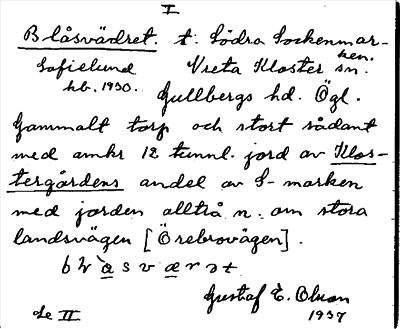 I
Blåsvädret. t. Södra Sockenmar-
ken.
Sofielund Vreta Kloster sn.
hb. 1930. Gullbergs hd. Ögl.
Gammalt torp och stort sådant
med omkr 12 tunnl. jord av Klos-
tergårdens andel av S-marken
med jorden alltså n. om stora
landsvägen [Örebrovägen].
Gustaf E. Olson
Se II 1937